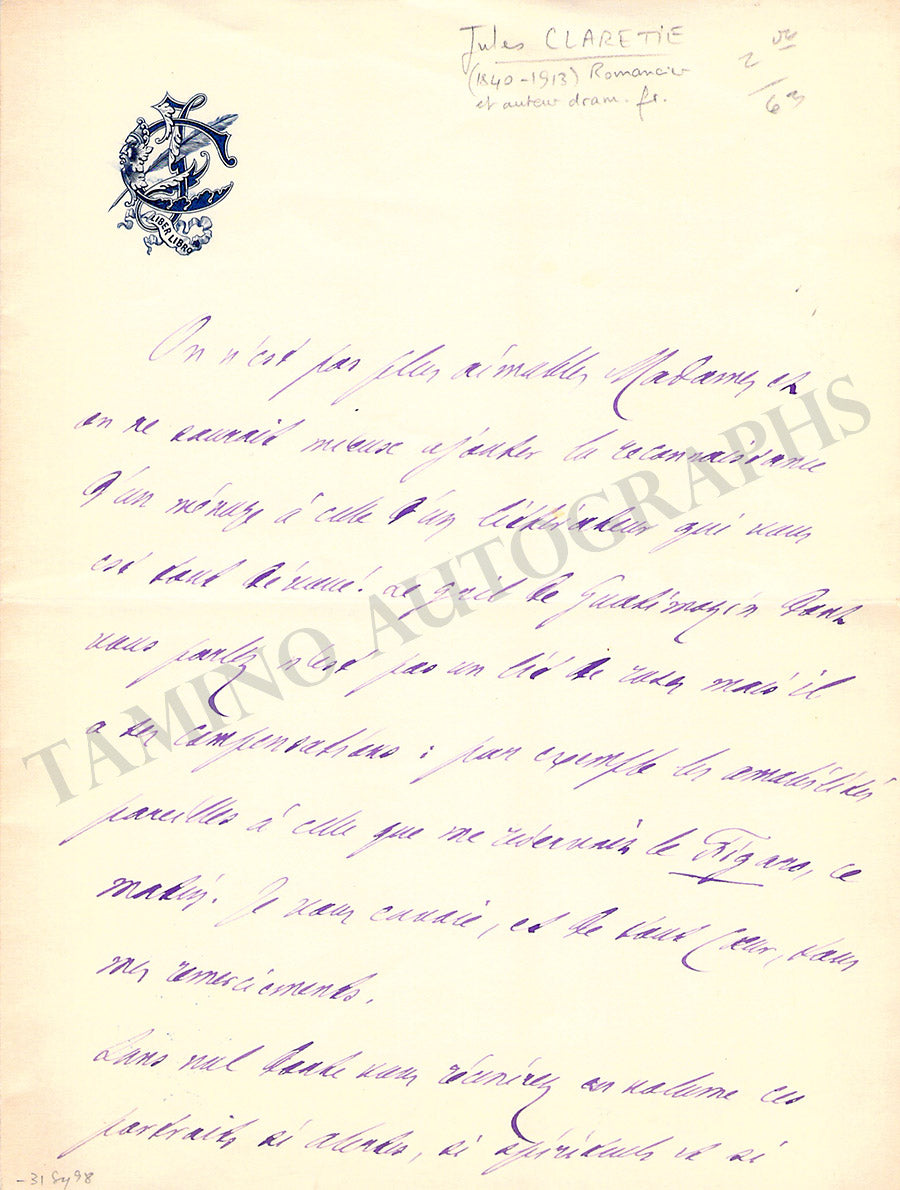 Jules CLARETIE
(1840-1913) Romancier
et auteur dram. fr.
2
63
LIBER LIBRO
On n'est pas plus aimable, Madame, et
on ne saurait mieux ajouter la reconnaissance
d'un ménage à celle d'un littérateur qui vous
est tout dévoué. Le gril de Guatimozin dont
vous parlez n'est pas un lit de roses mais il
a ses compensations : par exemple les amabilités
pareilles à celle que me réservait le Figaro, ce
matin. Je vous envoie, et de tout cœur, tous
mes remerciements.
Sans nul doute vous réunirez en volume ces
portraits si alertes, si spirituels et si
TAMINO AUTOGRAPHS